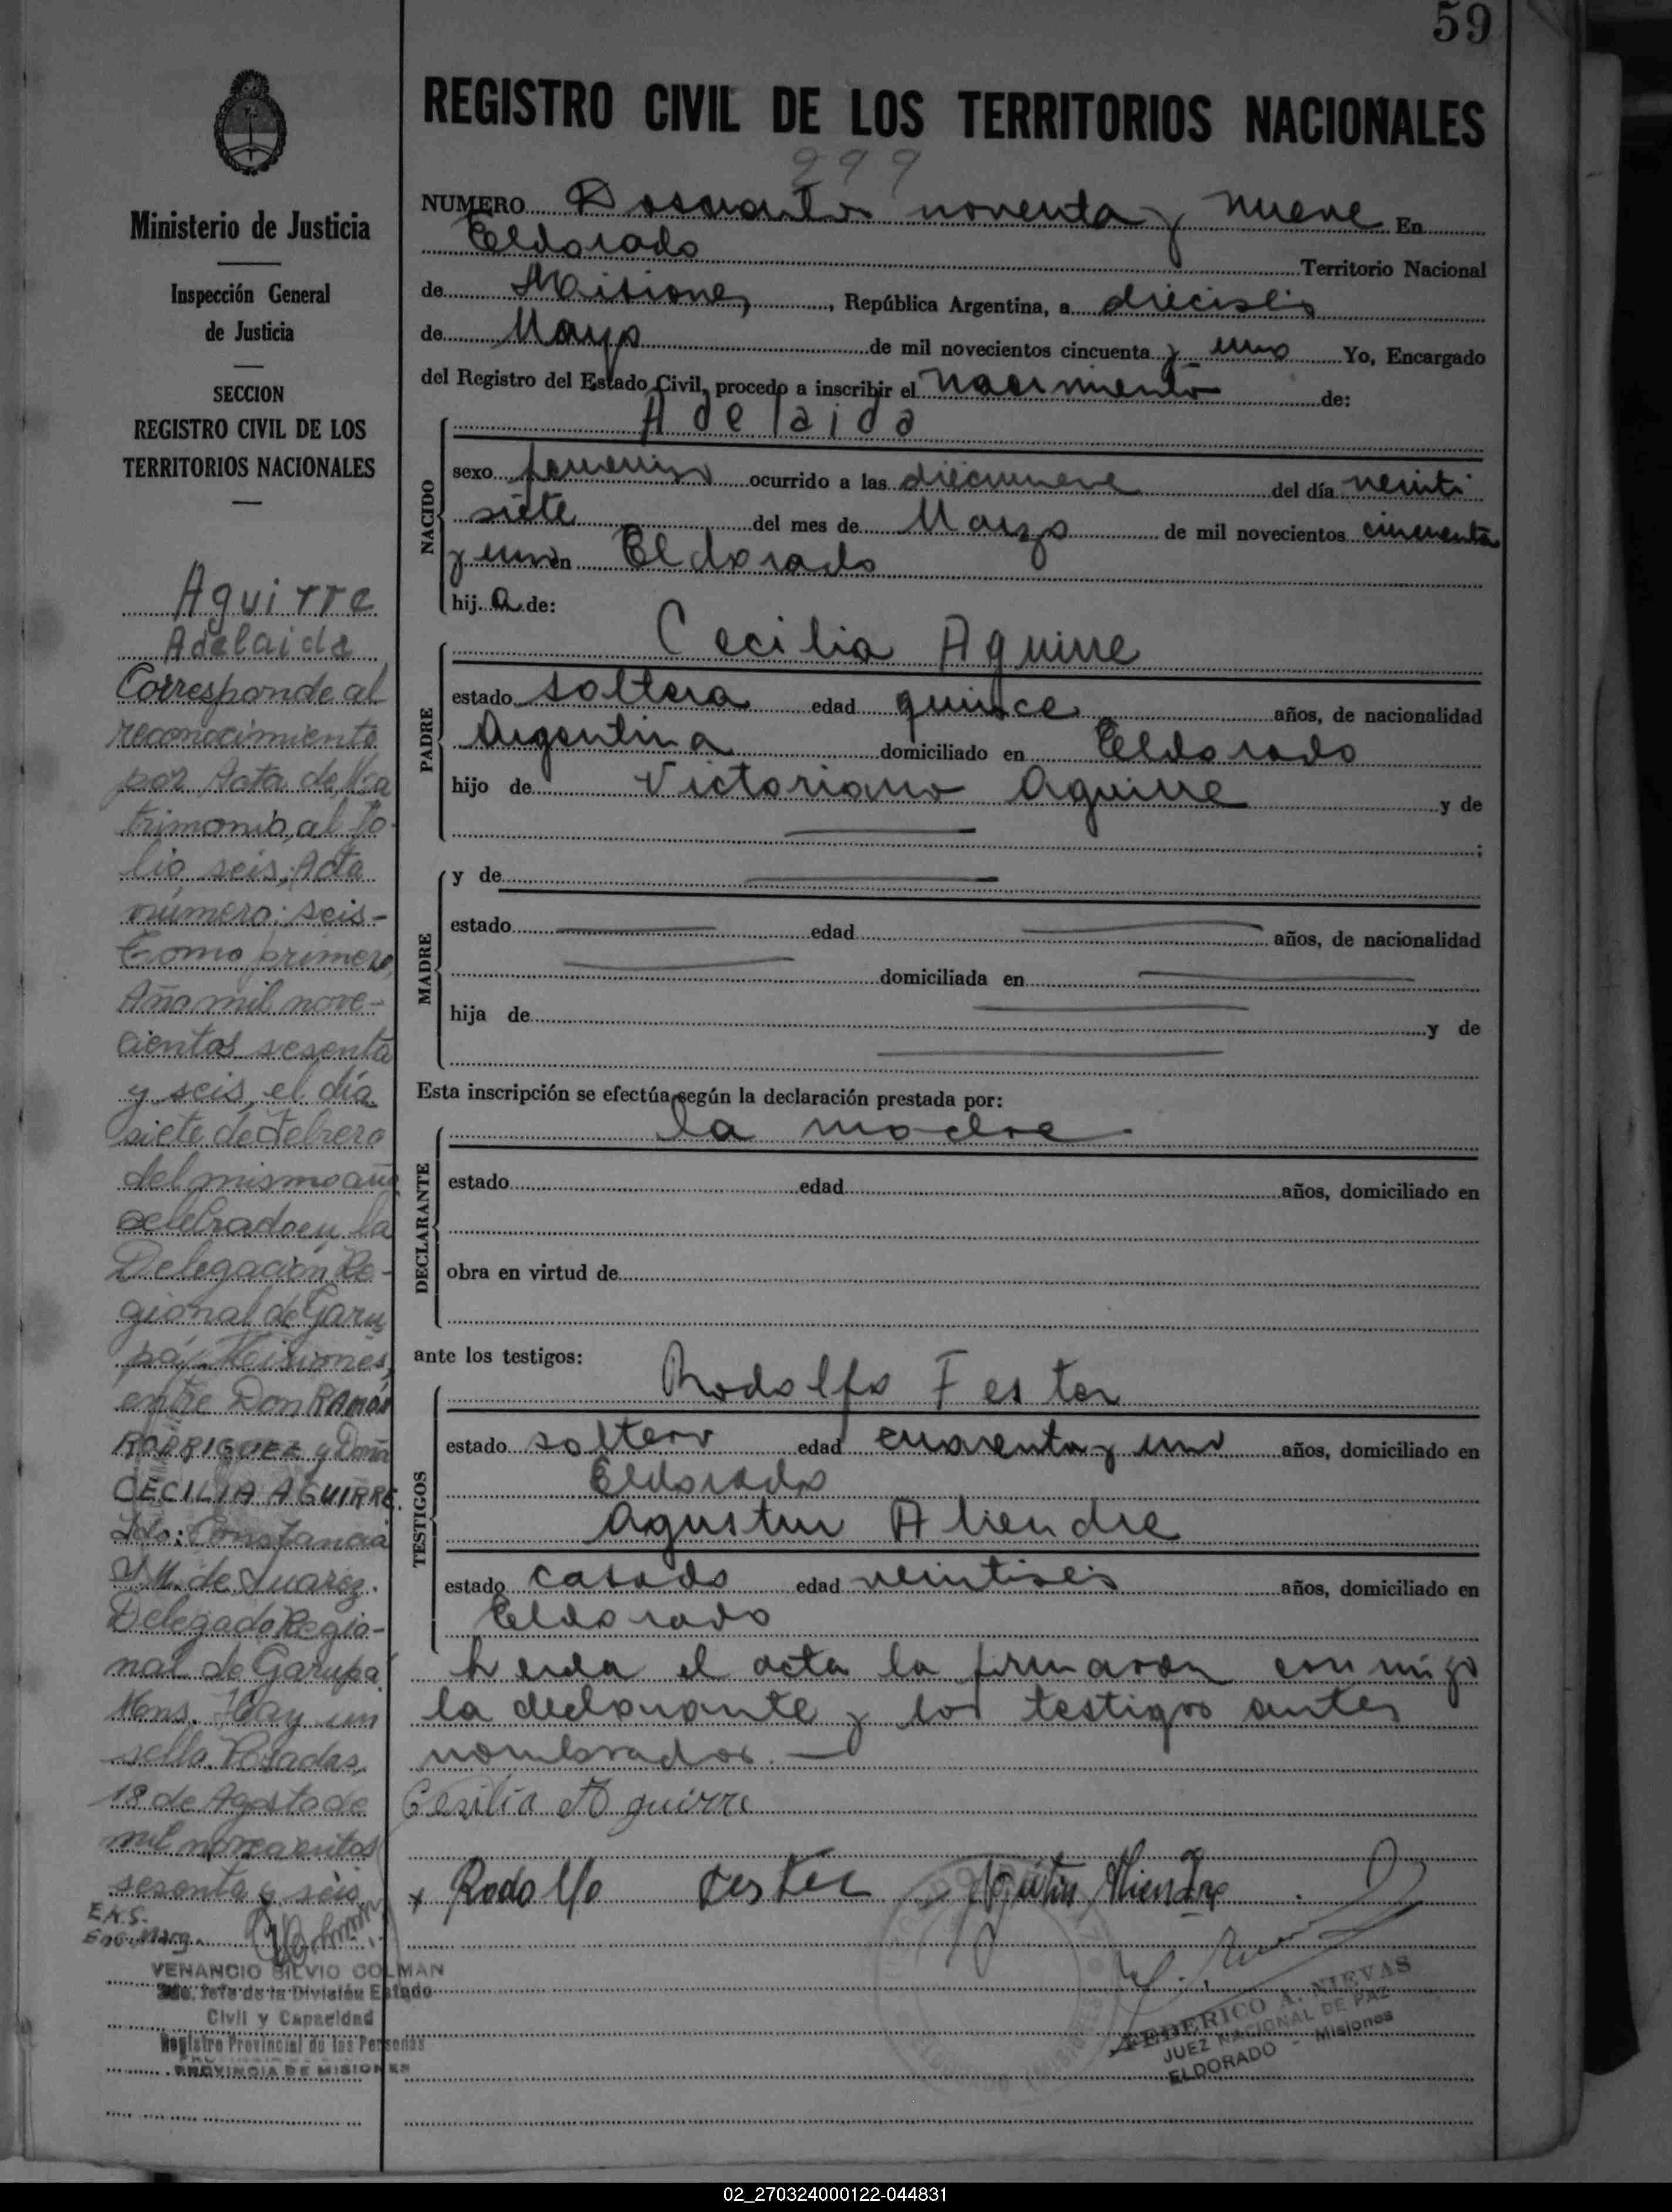 59
REGISTRO CIVIL DE LOS TERRITORIOS NACIONALES
299
NUMERO Doscientos noventa y nueve En
Eldorado Territorio Nacional
de Misiones, República Argentina, a dieciseis
de Mayo de mil novecientos cincuenta y uno Yo, Encargado
del Registro del Estado Civil, procedo a inscribir el nacimiento de:
NACIDO
Adelaida
sexo femenino ocurrido a las diecinueve del día veinti
siete del mes de Marzo de mil novecientos cincuenta
y uno en Eldorado
hij a de:
PADRE
Cecilia Aguirre
estado soltera edad quince años, de nacionalidad
Argentina domiciliado en Eldorado
hijo de Victoriano Aguirre y de
;
MADRE
y de
estado edad años, de nacionalidad
domiciliada en
hija de y de
Esta inscripción se efectúa según la declaración prestada por:
DECLARANTE
la madre
estado edad años, domiciliado en
obra en virtud de
ante los testigos:
TESTIGOS
Rodolfo Fester
estado soltero edad cuarenta y uno años, domiciliado en
Eldorado
Agustin Aliendre
estado casado edad veintiseis años, domiciliado en
Eldorado
Leida el acta la firmaron conmigo
la declarante y los testigos antes
nombrados.
Cesilia Aguirre
x Rodolfo Fester Agustin Aliendre
FEDERICO A. NIEVAS
JUEZ NACIONAL DE PAZ
ELDORADO - Misiones
Ministerio de Justicia
Inspección General
de Justicia
SECCION
REGISTRO CIVIL DE LOS
TERRITORIOS NACIONALES
Aguirre
Adelaida
Corresponde al
reconocimiento
por Acta de Ma
trimonio, al fo-
lio seis, Acta
número: seis-
Tomo primero,
Año mil nove-
cientos sesenta
y seis, el día
siete de Febrero
del mismo año
celebrado en la
Delegación Re-
gional de Garu
pá, Misiones,
entre Don RAMÓN
RODRIGUEZ y Doña
CECILIA AGUIRRE.
Fdo: Constancia
M. de Suarez.
Delegado Regio-
nal de Garupa
Mnes. Hay un
sello. Posadas,
18 de Agosto de
mil novecientos
sesenta y seis
E.N.S.
Enc. Marg.
VENANCIO SILVIO COLMAN
2do. Jefe de la División Estado
Civil y Capacidad
Registro Provincial de las Personas
PROVINCIA DE MISIONES
02_270324000122-044831